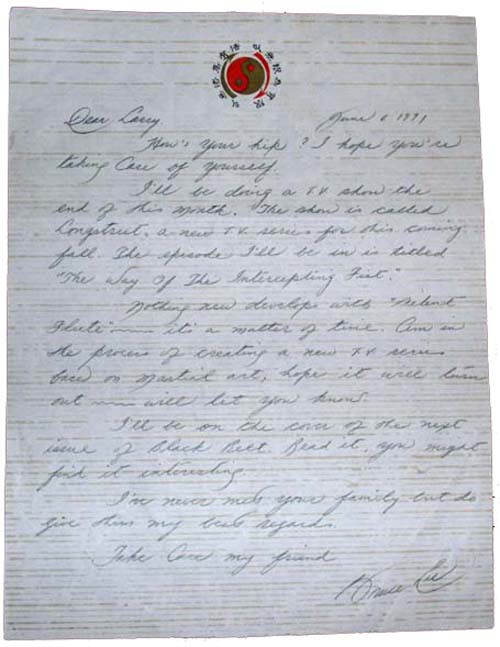 Dear Larry, June 6 1971
How's your hip? I hope you're
taking Care of yourself.
I'll be doing a T.V. show the
end of this month. The show is called
Longstreet, a new T.V. series for this coming
fall. The episode I'll be in is titled
"The Way Of The Intercepting Fist."
Nothing new develops with "Silent
Flute" — it's a matter of time. Am in
the process of creating a new T.V. series
base on martial art, hope it will turn
out — will let you know.
I'll be on the cover of the next
issue of Black Belt. Read it, you might
find it interesting.
I've never met your family but do
give them my best regards.
Take Care my friend
Bruce Lee